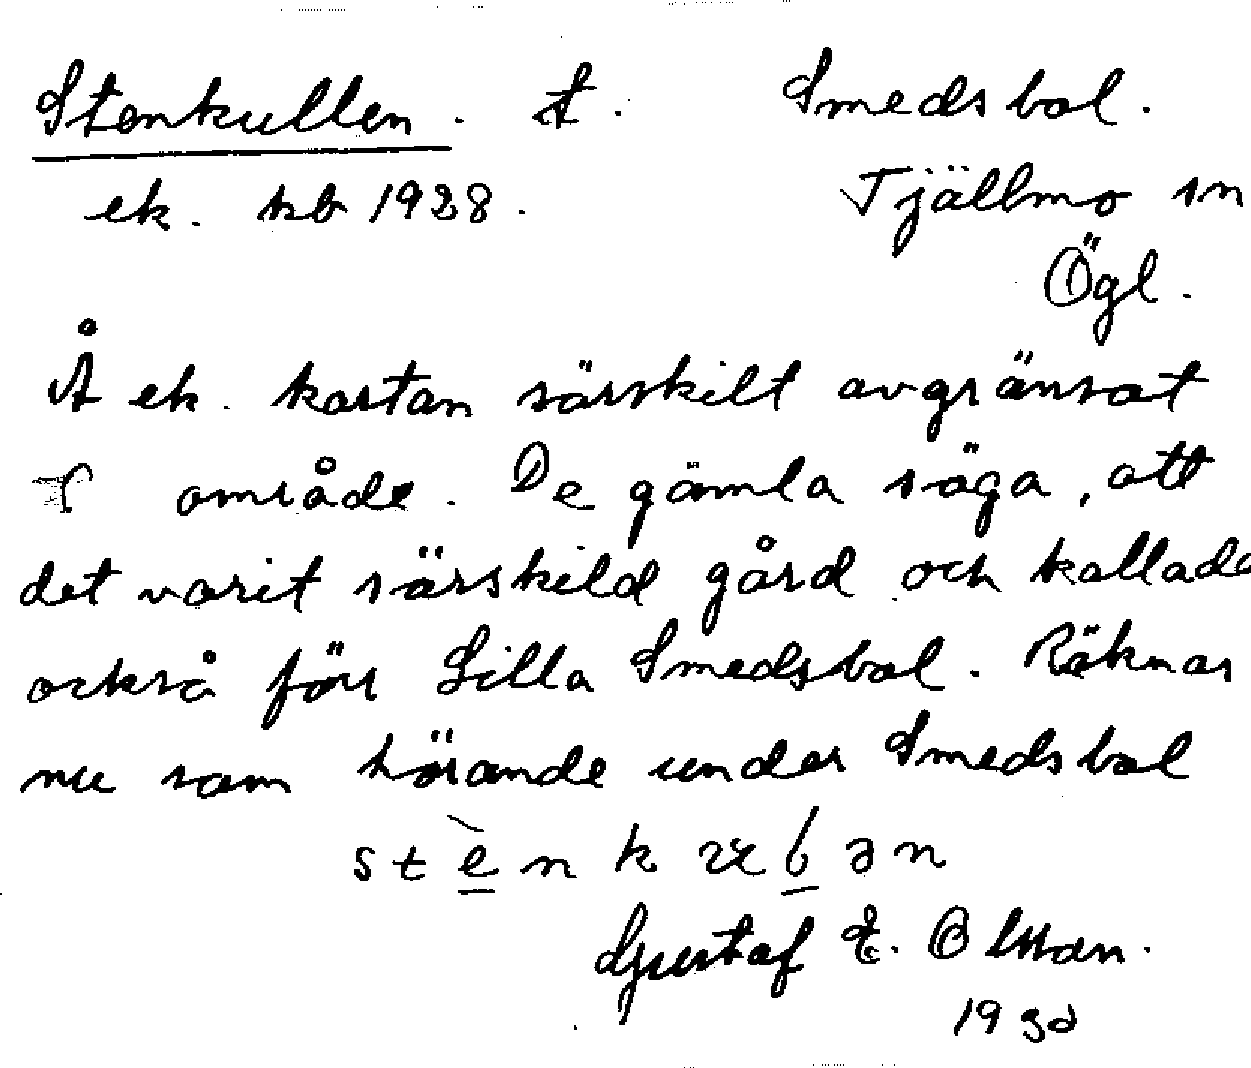 Stenkullen. t. Smedsbol.
ek. kb 1928. Tjällmo sn
Ögl.
Å ek. kartan särskilt avgränsat
område. De gamla säga, att
det varit särskild gård och kallade
också för Lilla Smedsbol. Räknas
nu som hörande under Smedsbol
Gustaf E. Olsson.
19